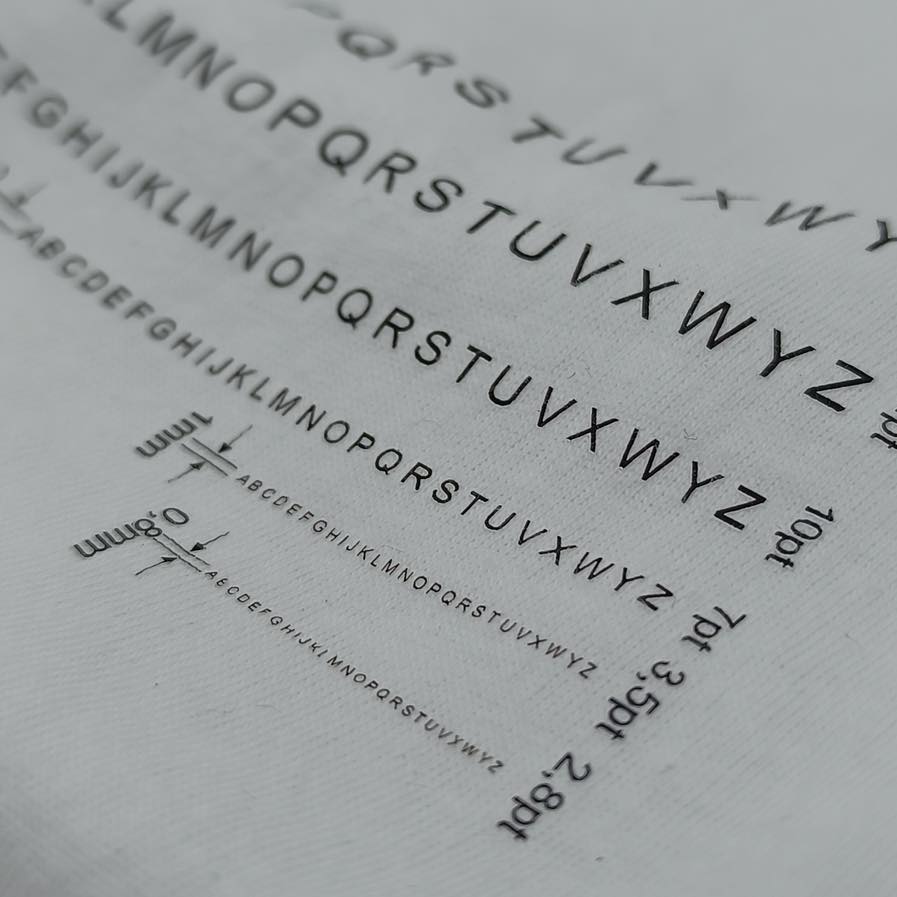 QRSTUVXWY
LMNOPQRSTUVXWYZ pt
FGHIJKLMNOPQRSTUVXWYZ 10pt
ABCDEFGHIJKLMNOPQRSTUVXWYZ 7pt
1mm ABCDEFGHIJKLMNOPQRSTUVXWYZ 3,5pt
0,8mm ABCDEFGHIJKLMNOPQRSTUVXWYZ 2,8pt